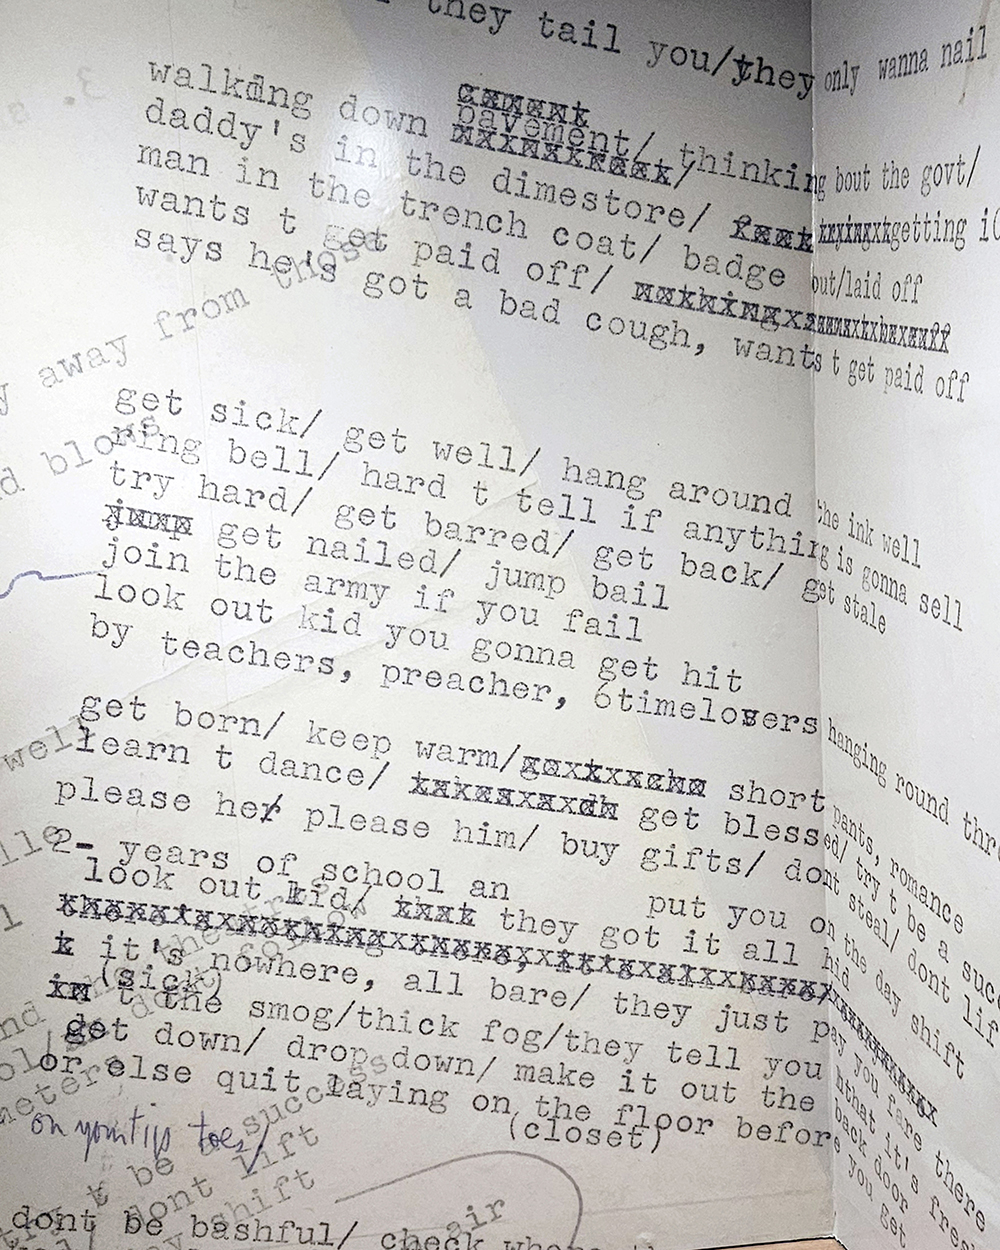 they tail you/they only wanna nail
walkdng down pavement/ thinking bout the govt/
daddy's in the dimestore/ getting
man in the trench coat/ badge out/laid off
wants t get paid off/
says he's got a bad cough, wants t get paid off
away from those
get sick/ get well/ hang around the ink well
blows
ring bell/ hard t tell if anything is gonna sell
try hard/ get barred/ get back/ get stale
jump get nailed/ jump bail
join the army if you fail
look out kid you gonna get hit
by teachers, preacher, 6timelosers hanging round
get born/ keep warm/ short pants, romance
well
learn t dance/ get blessed/ try t be a suc
please her please him/ buy gifts/ dont steal/ dont lif
2- years of school an put you on the day shift
look out kid/ they got it all hid
it's nowhere, all bare/ they just pay you fare there
(sick)
t the smog/thick fog/they tell you that it's fresh
get down/ drop down/ make it out the back door
or else quit laying on the floor before you get
(closet)
on your tips toes/
meters
t be success
dont lift
shift
air
dont be bashful/ check where